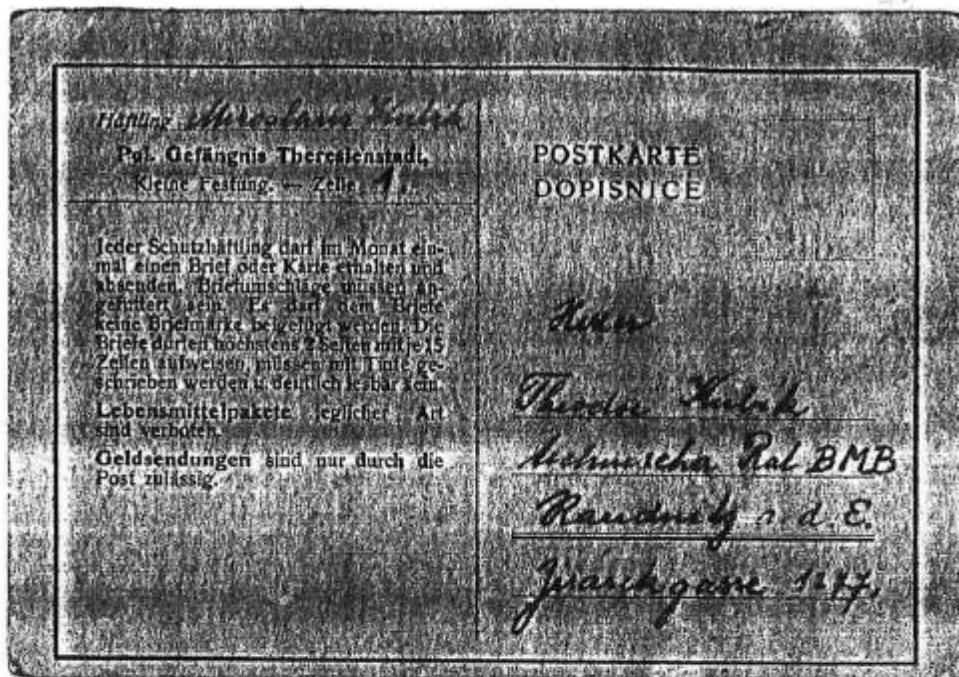 Häftling Miroslaus Kubik
Pol. Gefängnis Theresienstadt,
Kleine Festung. — Zelle 1.
Jeder Schutzhäftling darf im Monat ein-
mal einen Brief oder Karte erhalten und
absenden. Briefumschläge müssen an-
gefüttert sein. Es darf dem Briefe
keine Briefmarke beigefügt werden. Die
Briefe dürfen höchstens 2 Seiten mit je 15
Zeilen aufweisen, müssen mit Tinte ge-
schrieben werden u. deutlich lesbar sein.
Lebensmittelpakete jeglicher Art
sind verboten.
Geldsendungen sind nur durch die
Post zulässig.
POSTKARTE
DOPISNICE
Herrn
Theodor Kubik
Rat BMB
Raudnitz a. d. E.
1277.